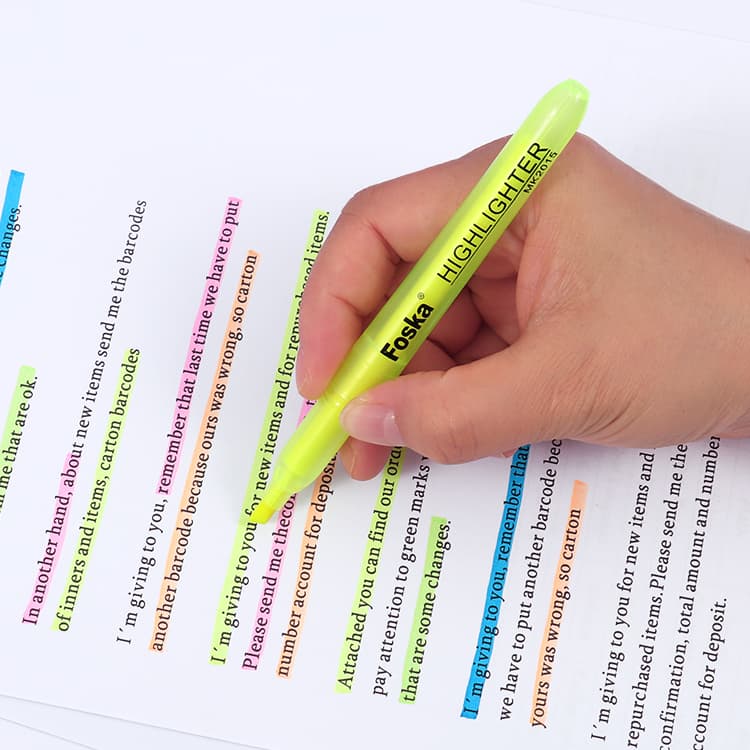 changes.
me that are ok.
In another hand, about new items send me the barcodes
of inners and items, carton barcodes
I´m giving to you, remember that last time we have to put
another barcode because ours was wrong, so carton
I´m giving to you for new items and for repurchased items.
Please send me thecon
number account for deposit
Attached you can find our
pay attention to green marks
that are some changes.
I´m giving to you, remember that
we have to put another barcode
yours was wrong, so carton
I´m giving to you for new items and
repurchased items. Please send me the
confirmation, total amount and number
account for deposit.
Foska®
HIGHLIGHTER
MK2015